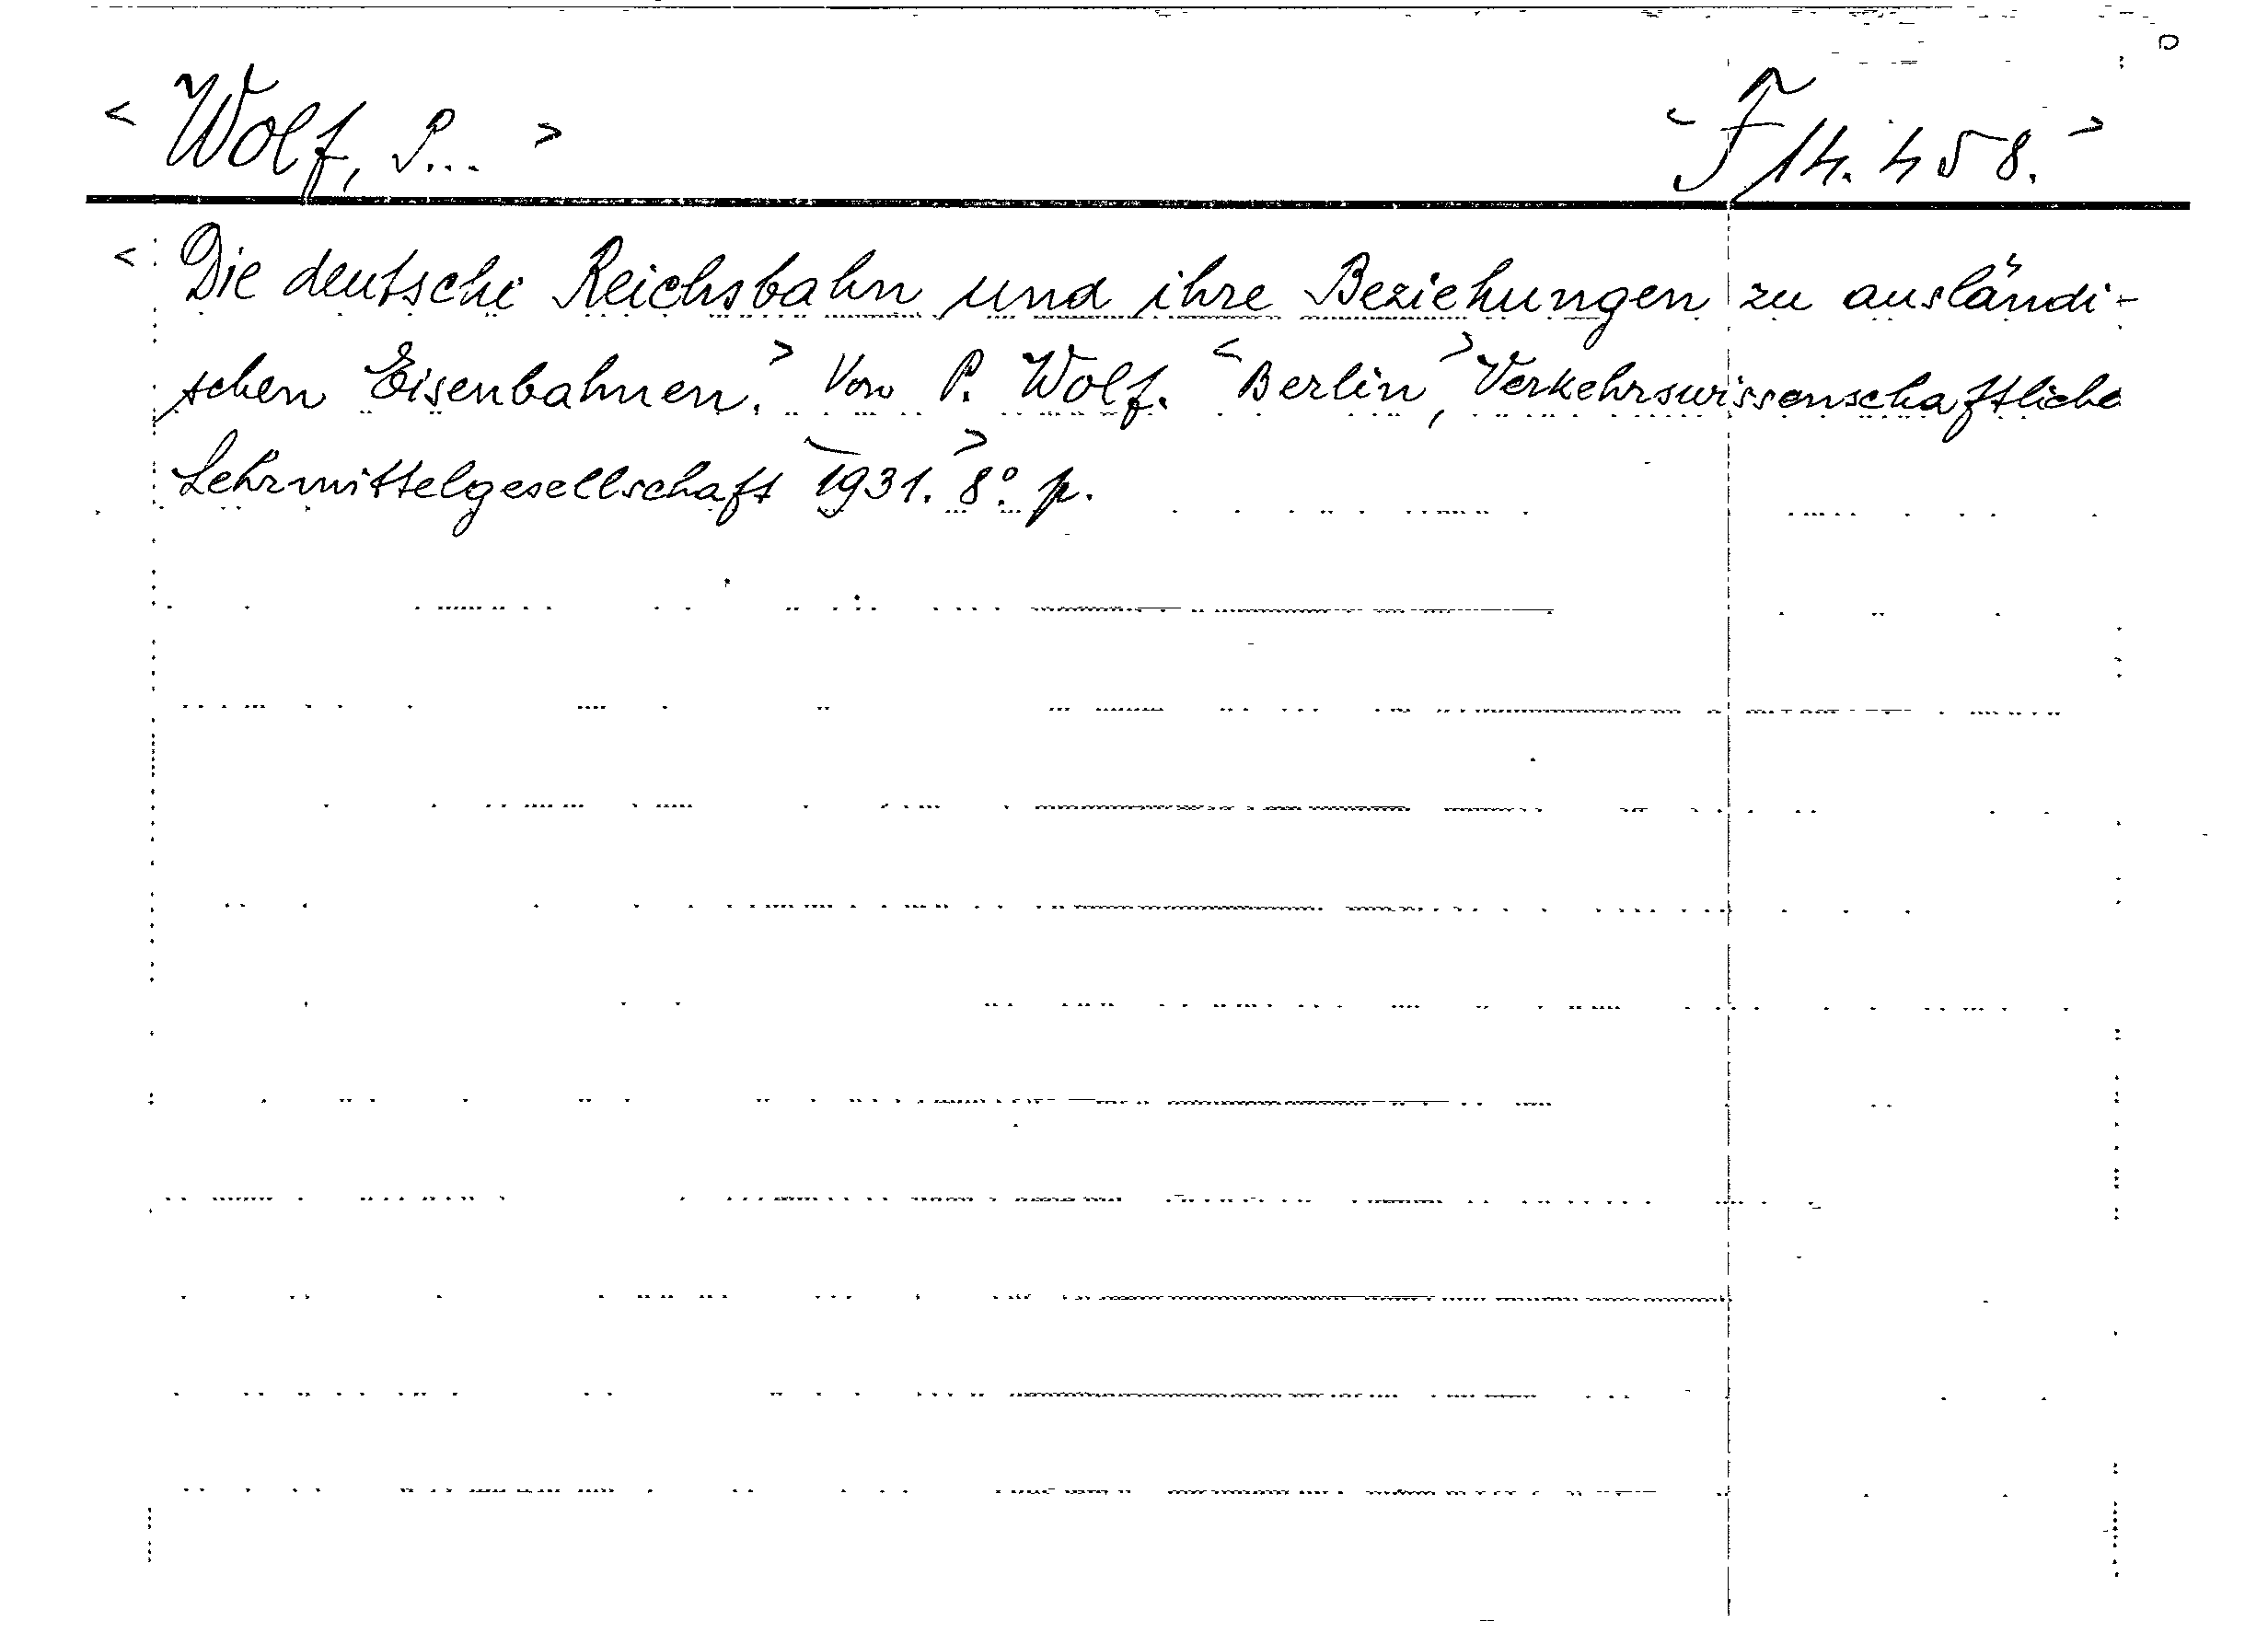 < Wolf, P... > < F 14.458. >
< Die deutsche Reichsbahn und ihre Beziehungen zu ausländi-
schen Eisenbahnen. > Von P. Wolf. < Berlin, > Verkehrswissenschaftliche
Lehrmittelgesellschaft < 1931. > 8° p.